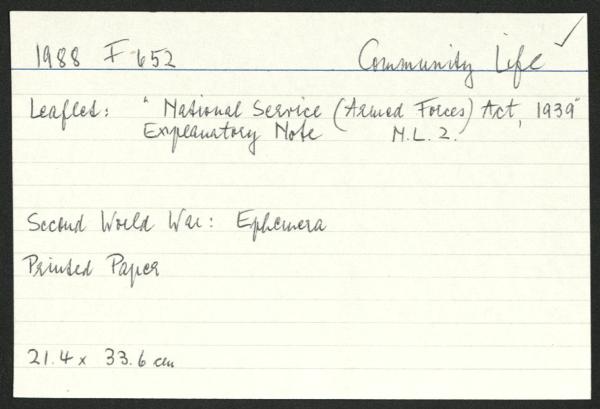 1988 F 652 Community Life ✓
Leaflet: "National Service (Armed Forces) Act, 1939"
Explanatory Note N.L.2.
Second World War: Ephemera
Printed Paper
21.4 x 33.6 cm